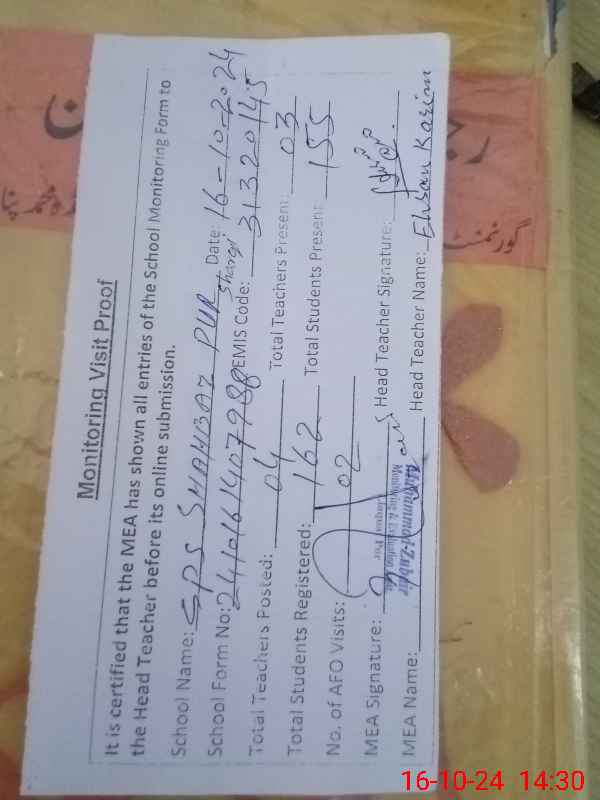 Monitoring Visit Proof
It is certified that the MEA has shown all entries of the School Monitoring Form to
the Head Teacher before its online submission.
School Name: GPS SHAHBAZ PUR Sharqi Date: 16-10-2024
School Form No: 2410161407988 EMIS Code: 31320145
Total Teachers Posted: 04 Total Teachers Present: 03
Total Students Registered: 162 Total Students Present: 155
No. of AFO Visits: 02
MEA Signature: Head Teacher Signature:
Muhammad Zubair
Monitoring & Evaluation
MEA Name: Head Teacher Name: Ehsan Karim
گورنمنٹ
16-10-24 14:30